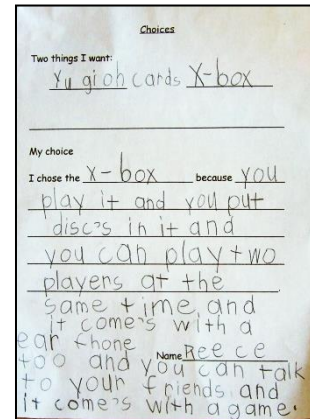 Choices
Two things I want:
Yu gi oh cards X-box
My choice
I chose the X-box because you
play it and you put
disc's in it and
you can play two
players at the
same time and
it come's with a
ear fhone
Name Reece
too and you can talk
to your friends and
it come's with a game.